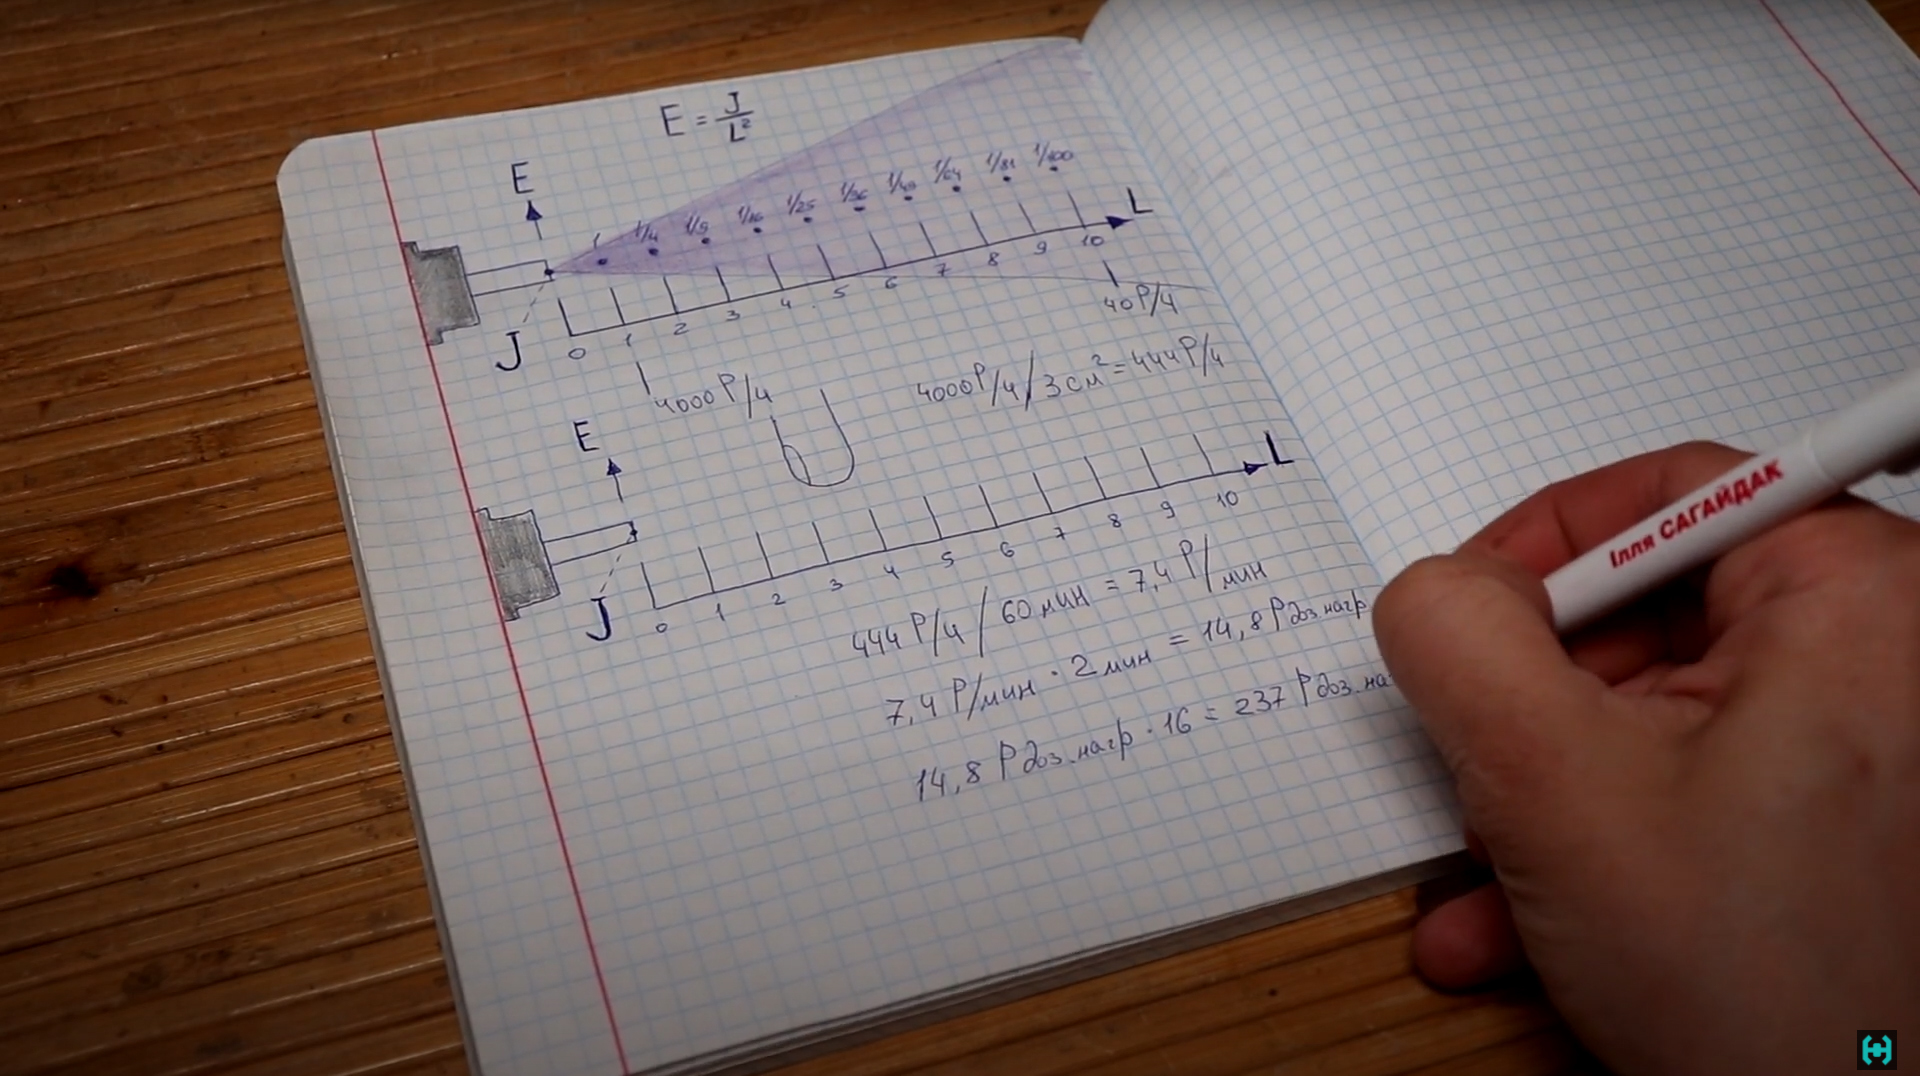 E = J/L²
E
1 1/4 1/9 1/16 1/25 1/36 1/49 1/64 1/81 1/100
L
0 1 2 3 4 5 6 7 8 9 10
J
40 Р/ч
4000 Р/ч
4000 Р/ч / 3 см² = 444 Р/ч
E
L
0 1 2 3 4 5 6 7 8 9 10
J
444 Р/ч / 60 мин = 7,4 Р/мин
7,4 Р/мин · 2 мин = 14,8 Р доз. нагр
14,8 Р доз. нагр · 16 = 237 Р доз. на
Ілля САГАЙДАК